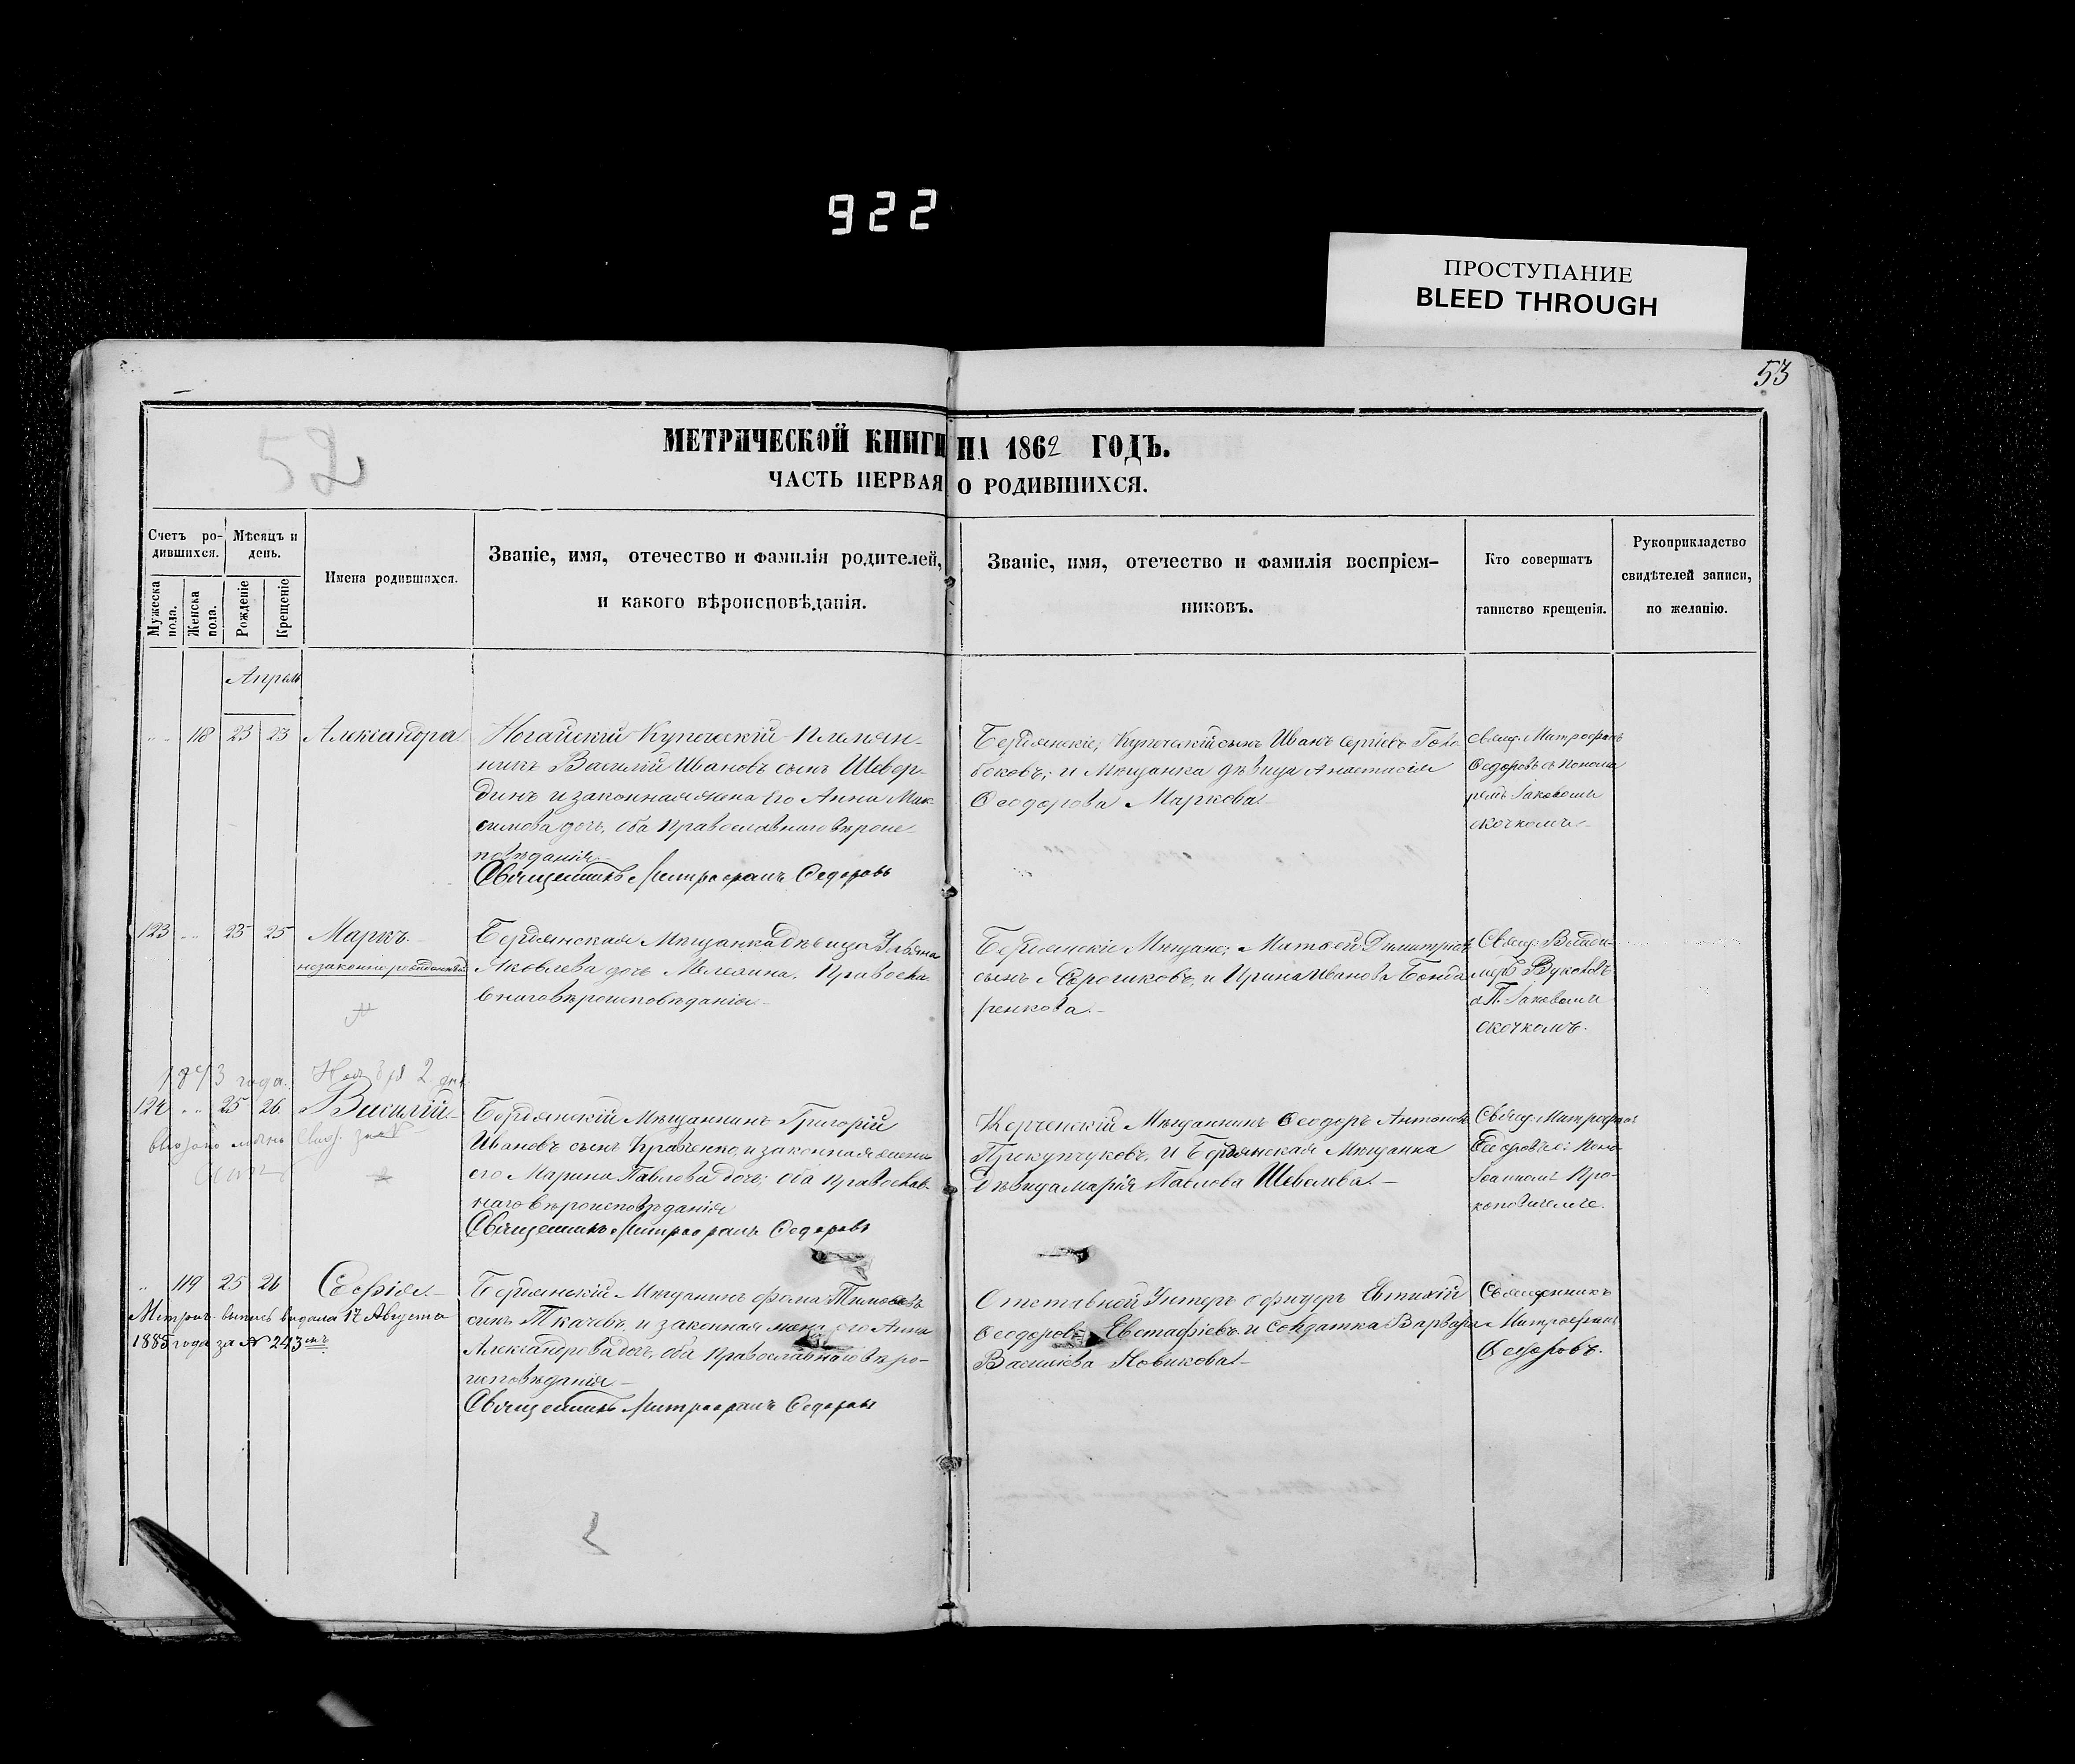 922
ПРОСТУПАНИЕ
BLEED THROUGH
53
52
МЕТРИЧЕСКОЙ КНИГИ НА 1862 ГОДЪ.
ЧАСТЬ ПЕРВАЯ О РОДИВШИХСЯ.
Счетъ ро-
дившихся.
Мужеска пола.
Женска пола.
Мѣсяцъ и
день.
Рожденіе
Крещеніе
Имена родившихся.
Званіе, имя, отечество и фамилія родителей,
и какого вѣроисповѣданія.
Званіе, имя, отечество и фамилія воспріем-
никовъ.
Кто совершатъ
таинство крещенія.
Рукоприкладство
свидѣтелей записи,
по желанію.
Апрѣль
118 23 23 Александра
Ногайскій Купеческій Племян-
никъ Василій Ивановъ сынъ Шевер-
динъ и законная жена его Анна Мак-
симова дочь, оба Православнаго вѣроис-
повѣданія
Священникъ Митрофанъ Федоровъ
Бердянскіе; Купеческій сынъ Иванъ Сергіевъ Голо
боковъ; и Мѣщанка дѣвица Анастасія
Ѳеодорова Маркова
Свящ. Митрофанъ
Ѳедоровъ съ Понома
ремъ Іаковомъ
Скочкомъ
123 25 25 Маркъ.
незаконнорожденный
Бердянская Мѣщанка дѣвица Ульяна
Яковлева дочь, Православ-
наго вѣроисповѣданія
Бердянскіе Мѣщане; Матвей Димитріевъ
сынъ и Ирина Иванова Бонда
ренкова.
Свящ. Влади-
міръ Вуковъ
с П. Іаковомъ
Скочкомъ.
1873 года. Ноября 2 дня
124 25 26 Василій
Бердянскій Мѣщанинъ Григорій
Ивановъ сынъ Кравченко, и законная жена
его Марина Павлова дочь; оба Православ-
наго вѣроисповѣданія
Священникъ Митрофанъ Федоровъ
Керченскій Мѣщанинъ Ѳеодоръ Антоновъ
Прокупчуковъ, и Бердянская Мѣщанка
дѣвица Марія Павлова Шевелева
Свящ. Митрофанъ
Ѳеодоровъ с: Поно-
Іоанномъ Про-
коповичемъ.
119 25 26 Софія
Метрич. выпись выдана 17 Августа
1885 года за № 243мъ
Бердянскій Мѣщанинъ Фома
сынъ Ткачевъ, и законная жена его Анна
Александрова дочь, оба Православнаго вѣро-
исповѣданія
Священникъ Митрофанъ Федоровъ
Отставной Унтеръ офицеръ Евтихій
Ѳеодоровъ Евстафіевъ и Солдатка Варвара
Василіева Новикова
Священникъ
Митрофанъ
Ѳедоровъ.